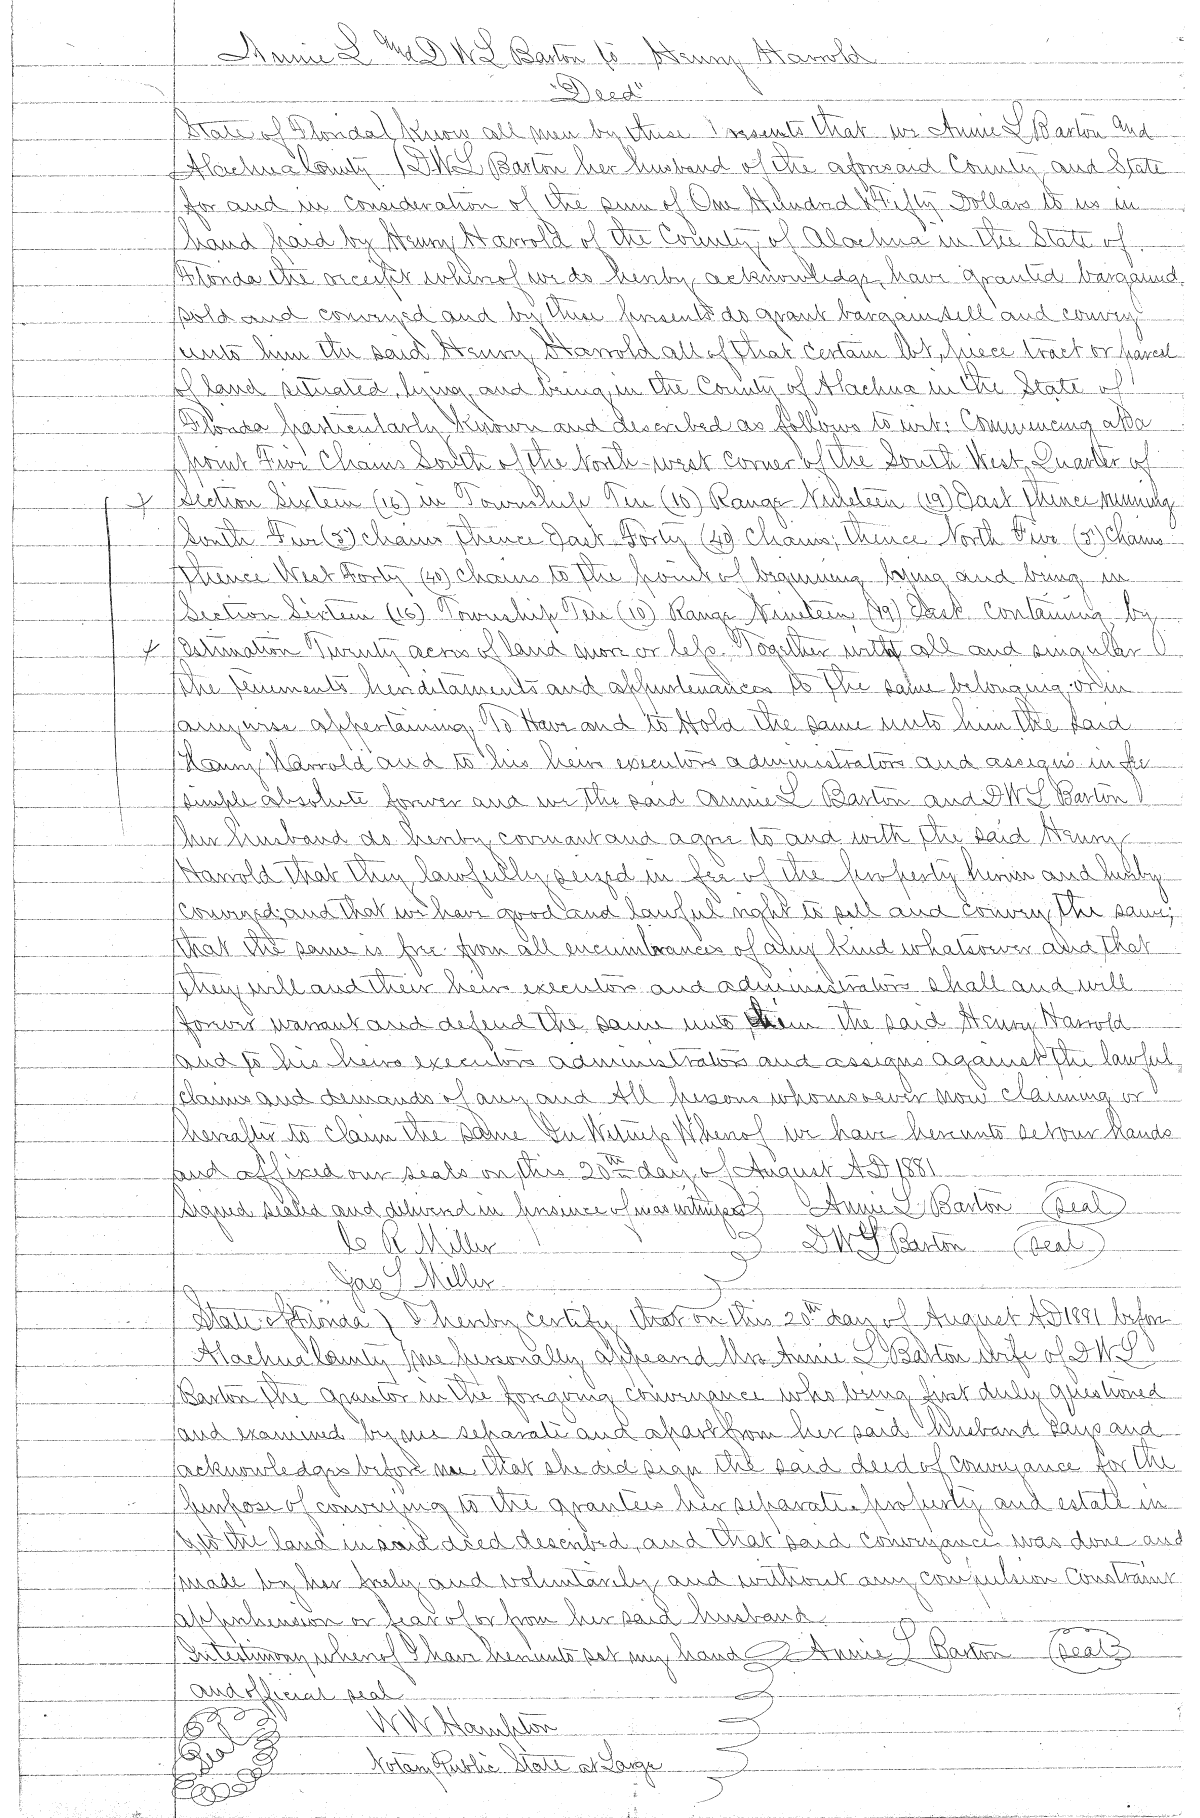 Annie L and D W L Barton to Henry Harrold
"Deed"
State of Florida } Know all men by these Presents that we Annie L Barton and
Alachua County } D.W.L Barton her husband of the aforesaid County and State
for and in consideration of the sum of One Hundred & Fifty Dollars to us in
hand paid by Henry Harrold of the County of Alachua in the State of
Florida the receipt whereof we do hereby acknowledge, have granted bargained
sold and conveyed and by these presents do grant bargain sell and convey
unto him the said Henry Harrold all of that certain lot, piece tract or parcel
of land situated, lying and being in the County of Alachua in the State of
Florida particularly known and described as follows to wit: Commencing at a
point Five Chains South of the North-west corner of the South West Quarter of
Section Sixteen (16) in Township Ten (10) Range Nineteen (19) East thence running
South Five (5) chains thence East Forty (40) Chains; thence North Five (5) Chains
thence West Forty (40) chains to the point of beginning lying and being in
Section Sixteen (16) Township Ten (10) Range Nineteen (19) East containing by
Estimation Twenty acres of land more or less. Together with all and singular
the tenements hereditaments and appurtenances to the same belonging or in
anywise appertaining, To Have and to Hold the same unto him the said
Henry Harrold and to his heirs executors administrators and assigns in fee
simple absolute forever and we the said Annie L Barton and D W L Barton
her husband do hereby covenant and agree to and with the said Henry
Harrold that they lawfully seized in fee of the property herein and hereby
conveyed; and that we have good and lawful right to sell and convey the same;
that the same is free from all encumbrances of any kind whatsoever and that
they will and their heirs executors and administrators shall and will
forever warrant and defend the same unto him the said Henry Harrold
and to his heirs executors administrators and assigns against the lawful
claims and demands of any and all persons whomsoever now claiming or
hereafter to claim the same In Witness Whereof we have hereunto set our hands
and affixed our seals on this 20th day of August A.D 1881
Signed sealed and delivered in presence of us as witnesses } Annie L Barton (seal)
C R Miller } D W L Barton (seal)
Jas L Miller
State of Florida } I hereby certify that on this 20th day of August A.D 1881 before
Alachua County } me personally appeared Mrs Annie L Barton wife of D W L
Barton the grantor in the foregoing conveyance who being first duly questioned
and examined by me separate and apart from her said husband says and
acknowledges before me that she did sign the said deed of conveyance for the
purpose of conveying to the grantees her separate property and estate in
& to the land in said deed described, and that said conveyance was done and
made by her freely and voluntarily and without any compulsion constraint
apprehension or fear of or from her said husband
In testimony whereof I have hereunto set my hand } Annie L Barton (seal)
and official seal
W W Hampton
Seal
Notary Public State at Large